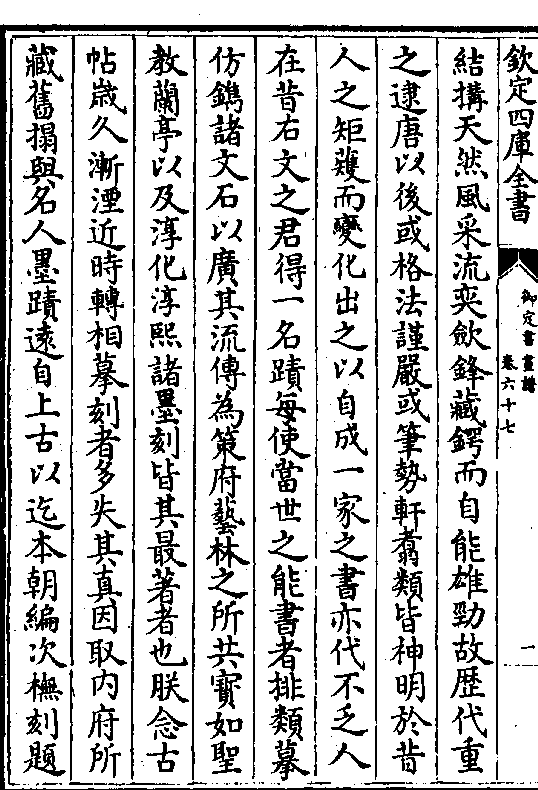 欽定四庫全書
御定書畫譜
卷六十七
一
結搆天然風采流奕歛鋒藏鍔而自能雄勁故歴代重
之逮唐以後或格法謹嚴或筆勢軒翥類皆神明於昔
人之矩矱而變化出之以自成一家之書亦代不乏人
在昔右文之君得一名蹟每使當世之能書者排類摹
仿鐫諸文石以廣其流傳為策府藝林之所共寳如聖
教蘭亭以及淳化淳熙諸墨刻皆其最著者也朕念古
帖嵗久漸湮近時轉相摹刻者多失其真因取内府所
藏舊搨與名人墨蹟遠自上古以迄本朝編次橅刻題